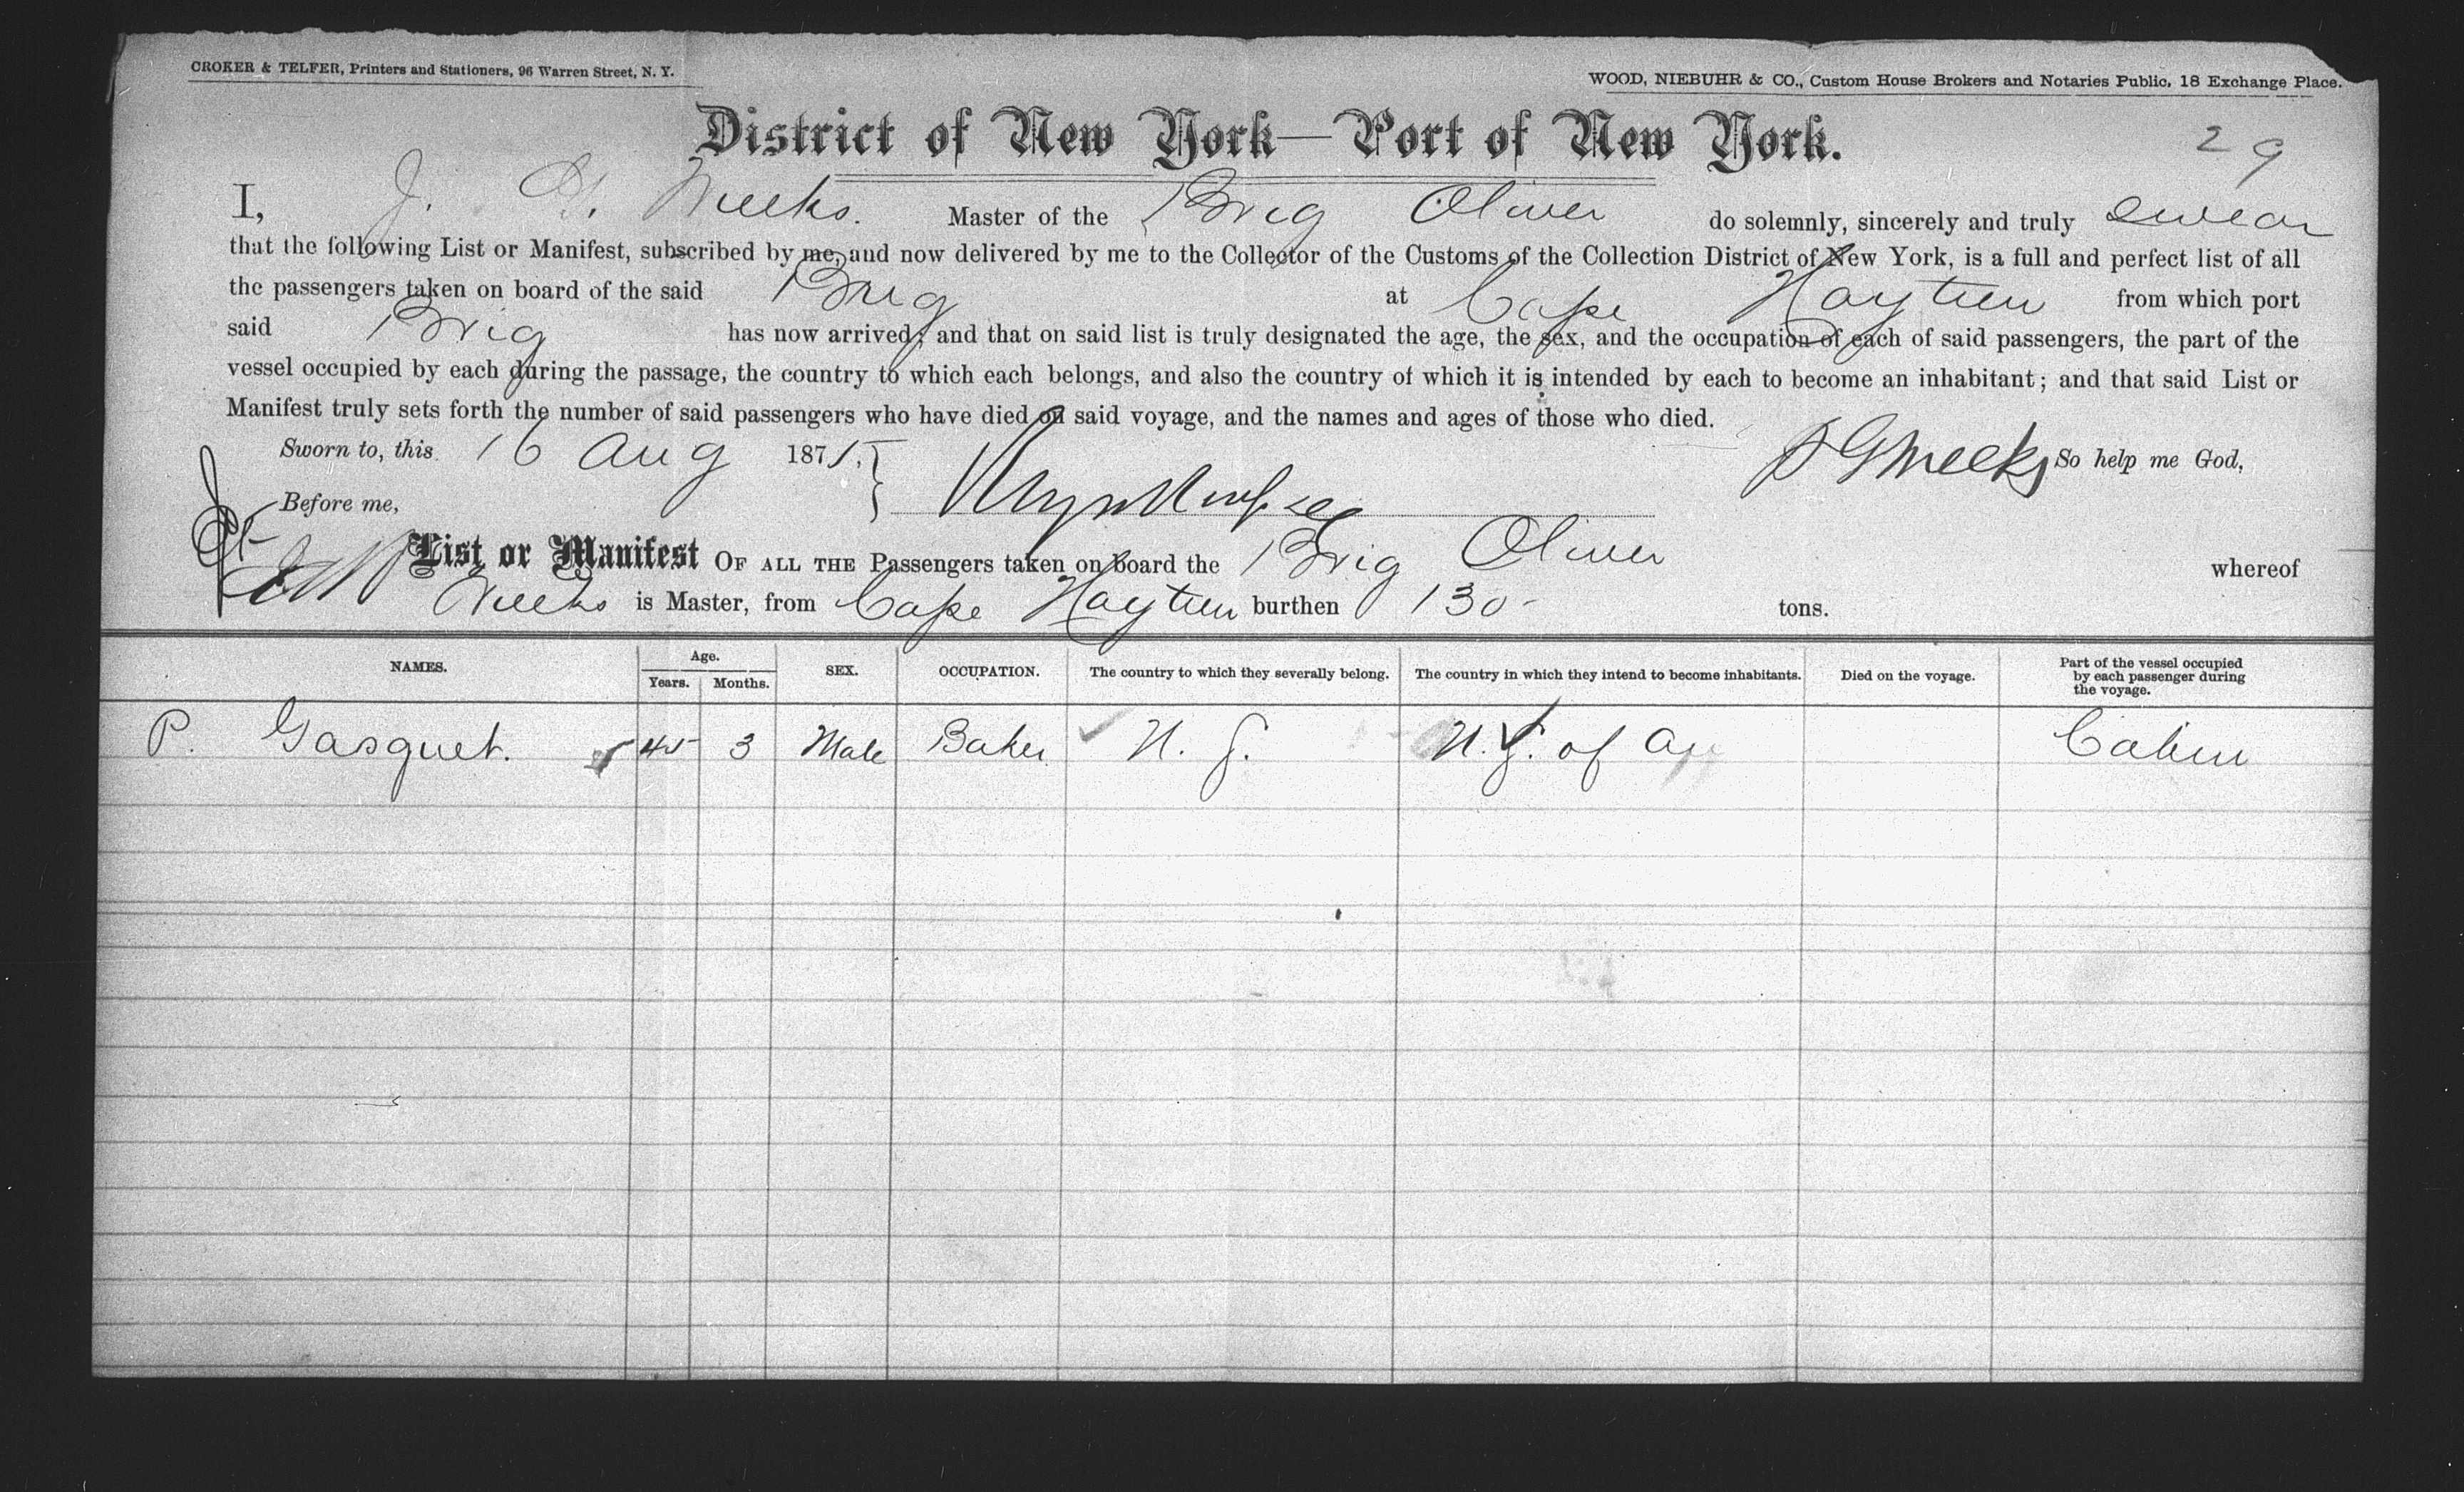 CROKER & TELFER, Printers and Stationers, 96 Warren Street, N. Y.
WOOD, NIEBUHR & CO., Custom House Brokers and Notaries Public, 18 Exchange Place.
District of New York—Port of New York.
29
I, J. G. Meeks. Master of the Brig Oliver do solemnly, sincerely and truly swear
that the following List or Manifest, subscribed by me, and now delivered by me to the Collector of the Customs of the Collection District of New York, is a full and perfect list of all
the passengers taken on board of the said Brig at Cape Haytien from which port
said Brig has now arrived; and that on said list is truly designated the age, the sex, and the occupation of each of said passengers, the part of the
vessel occupied by each during the passage, the country to which each belongs, and also the country of which it is intended by each to become an inhabitant; and that said List or
Manifest truly sets forth the number of said passengers who have died on said voyage, and the names and ages of those who died.
Sworn to, this 16 Aug 1875. J G Meeks So help me God,
Before me,
List or Manifest OF ALL THE Passengers taken on board the Brig Oliver whereof
Meeks is Master, from Cape Haytien burthen 130 tons.
NAMES. Age. Years. Months. SEX. OCCUPATION. The country to which they severally belong. The country in which they intend to become inhabitants. Died on the voyage. Part of the vessel occupied by each passenger during the voyage.
P. Gasquet. 45 3 Male Baker of Cabin